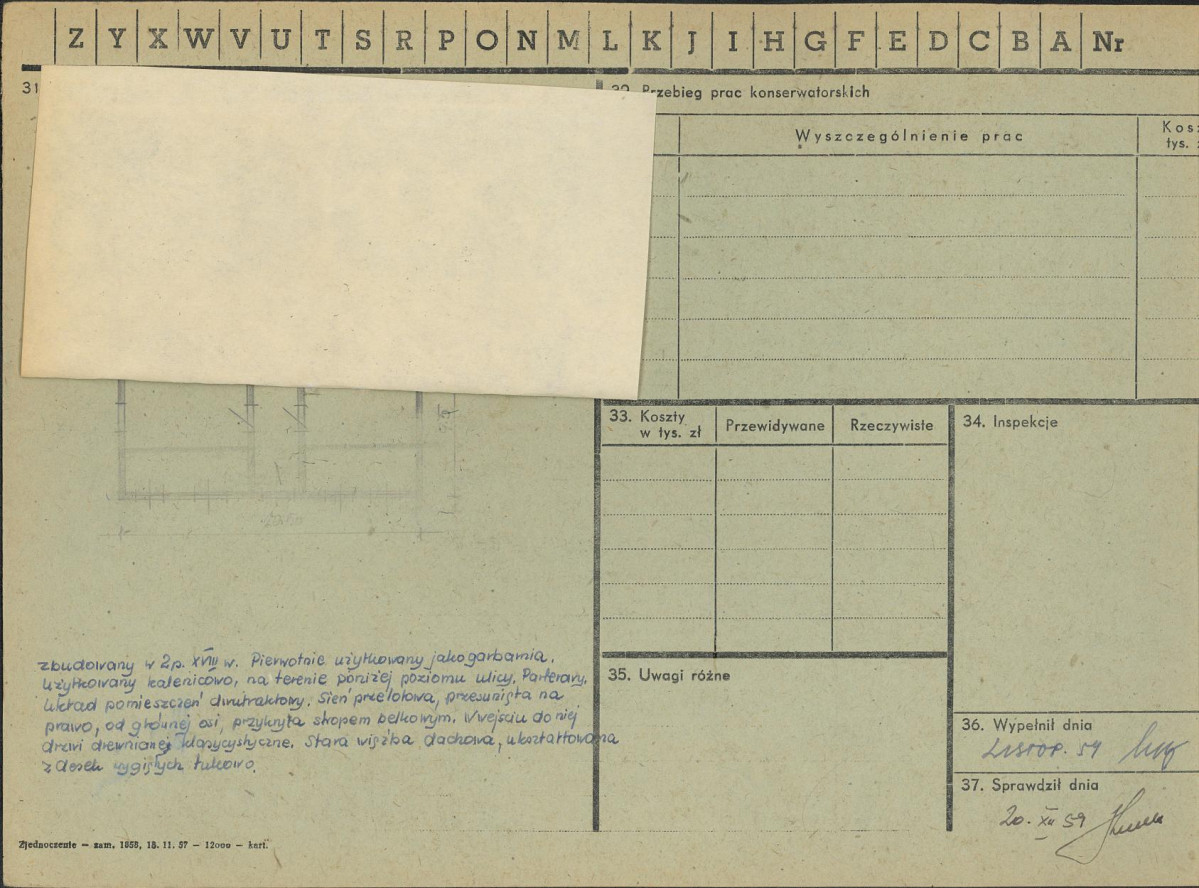 Z Y X W V U T S R P O N M L K J I H G F E D C B A Nr
31
32. Przebieg prac konserwatorskich
Wyszczególnienie prac
Kosz
tys. z
33. Koszty
w tys. zł
Przewidywane
Rzeczywiste
34. Inspekcje
zbudowany w 2 p. XVIII w. Pierwotnie użytkowany jako garbarnia.
Użytkowany kalenicowo, na terenie poniżej poziomu ulicy. Parterowy.
Układ pomieszczeń dwutraktowy. Sień przelotowa, przesunięta na
prawo, od głównej osi, przykryta stropem belkowym. W wejściu do niej
drzwi drewniane klasycystyczne. Stara więźba dachowa, ukształtowana
z desek wygiętych łukowo.
35. Uwagi różne
36. Wypełnił dnia
Listop. 59
37. Sprawdził dnia
20. XII 59
Zjednoczenie — zam. 1858, 18. 11. 57 — 12000 — kart.